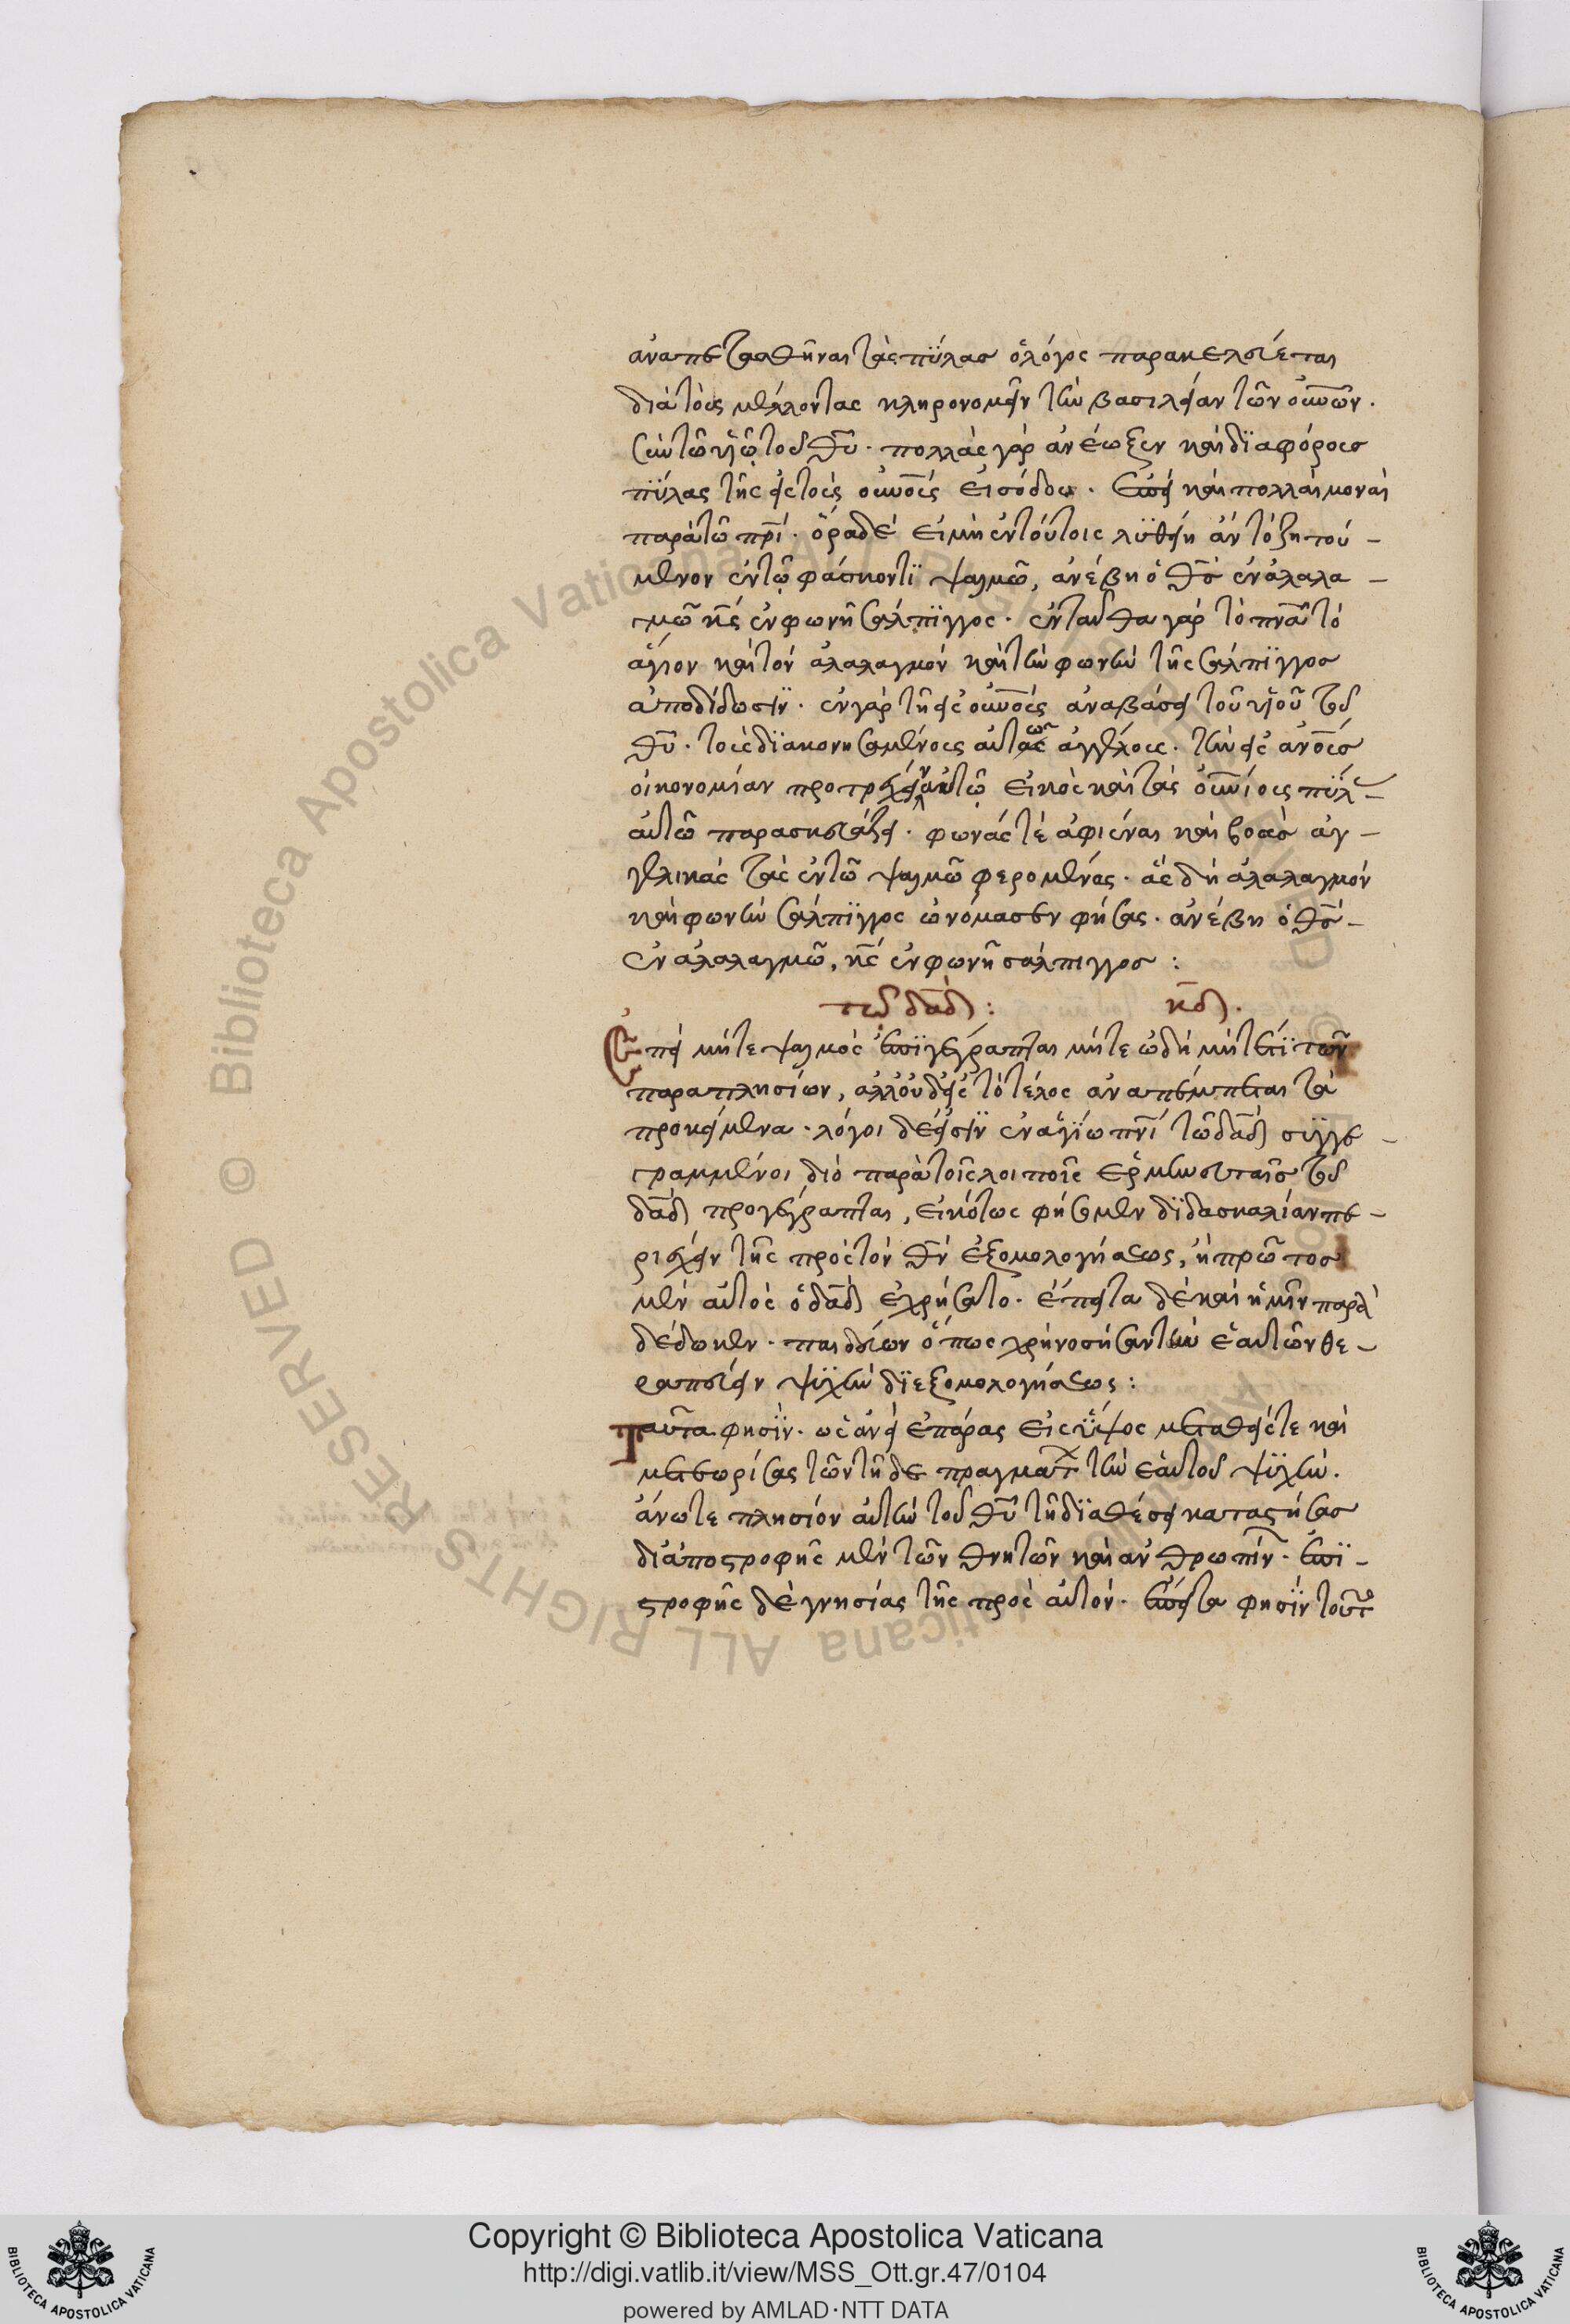 ἀναπετασθῆναι τὰς πϋλας ὁ λόγος παρακελεύεται
διὰ τοὺς μέλλοντας κληρονομεῖν τὴν βασιλείαν τῶν οὐνῶν.
σὺν τῶ υἱῶ τοῦ θῦ. πολλὰς γὰρ ἀνέωξεν καὶ δϊαφόρους
πϋλας τῆς εἰς τοὺς οὐνοὺς εἰσόδου. ἐπεὶ καὶ πολλαὶ μοναὶ
παρὰ τῶ πρὶ. ὅρα δὲ εἰ μὴ ἐν τούτοις λϋθείη ἂν τὸ ζητού-
μενον ἐν τῶ φάσκοντϊ ψαλμῶ, ἀνέβη ὁ θς ἐν ἀλαλα-
γμῶ κς ἐν φωνῆ σάλπϊγγος. ἐνταῦθα γὰρ τὸ πνα τὸ
ἅγιον καὶ τὸν ἀλαλαγμὸν καὶ τὴν φωνὴν τῆς σάλπϊγγος
ἀποδίδωσϊν. ἐν γὰρ τῆ εἰς οὐνοὺς ἀναβάσει τοῦ υἱοῦ τοῦ
θῦ. τοὺς δϊακονησαμένους αὐτῶ ἀγγέλους. τὴν εἰς ἀνοὺς
οἰκονομίαν προτρέχειν αὐτῶ εἰκὸς καὶ τὰς οὐνίους πϋλ-
αὐτῶ παρασκευάζειν. φωνάς τὲ ἀφιέναι καὶ βοὰς ἀγ-
γελικὰς τὰς ἐν τῶ ψαλμῶ φερομένας. ἃς δὴ ἀλαλαγμὸν
καὶ φωνὴν σάλπϊγγος ὠνόμασεν φήσας. ἀνέβη ὁ θς-
ἐν ἀλαλαγμῶ, κς ἐν φωνῆ σάλπιγγος :
τῶ δαδ: κδ.
Ἐπεὶ μήτε ψαλμὸς ἐπϊγέγραπται μήτε ὠδὴ μήτέ τϊ τῶν
παραπλησίων, ἀλλ' οὐδ' εἰς τὸ τέλος ἀναπέμπεται τὰ
προκείμενα. λόγοι δέ εἰσϊν ἐν ἁγϊω πνι τῶ δαδ συϊγγε-
γραμμένοι διὸ παρὰ τοῖς λοιποῖς ἑρμηνευταῖς τοῦ
δαδ προγέγραπται, εἰκότως φήσομεν δϊδασκαλίαν πε-
ριέχειν τῆς πρὸς τὸν θν ἐξομολογήσεως, ἢ πρῶτος
μὲν αὐτὸς ὁ δαδ ἐχρήσατο. ἔπειτα δὲ καὶ ἡμῖν παρα
δέδωκεν. παιδεύων ὅπως χρὴ νοσήσαντων ἑαυτῶν θε-
ραπεύειν ψϋχὴν δϊ ἐξομολογήσεως :
Ταῦτα φησϊν. ὡς ἀνεὶ ἐπάρας εἰς ὕψος μεταθείς τε καὶ
μετεωρίσας τῶν τῆδε πραγματ τὴν ἑαυτοῦ ψϋχήν.
ἄνω τε πλησίον αὐτὴν τοῦ θῦ τῆ δϊαθέσει καταστήσας
δϊ ἀποστροφῆς μὲν τῶν θνητῶν καὶ ἀνθρωπίν. ἐπϊ-
στροφῆς δὲ γνησίας τῆς πρὸς αὐτόν. ἔπειτα φησϊν τοῦτ
Copyright © Biblioteca Apostolica Vaticana
http://digi.vatlib.it/view/MSS_Ott.gr.47/0104
powered by AMLAD·NTT DATA